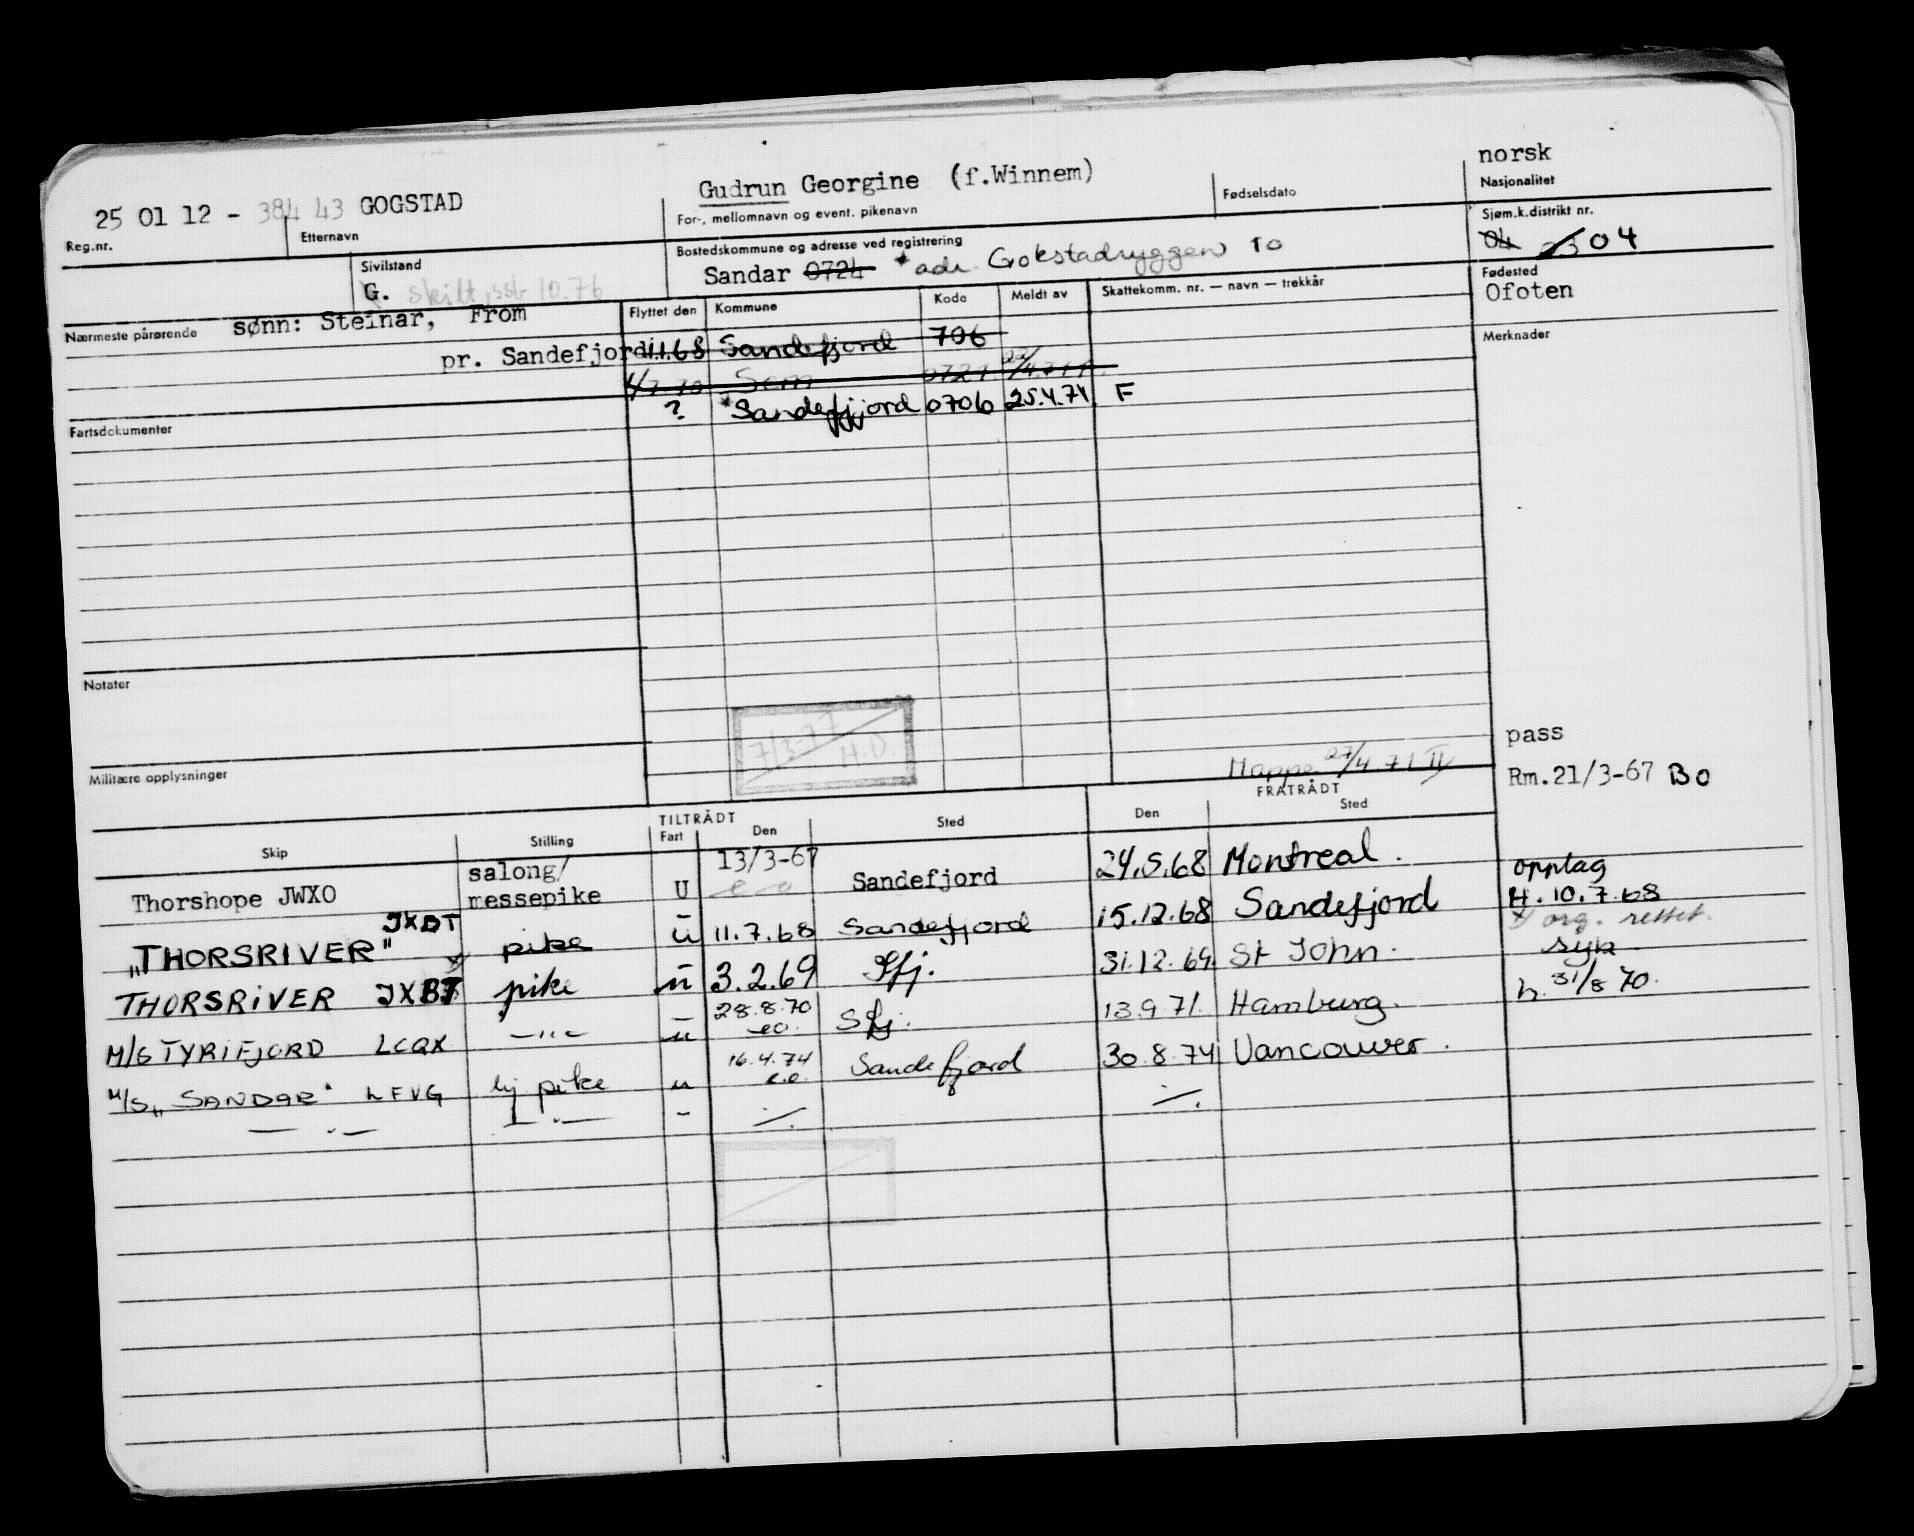 norsk
25 01 12 - 384 43 GOGSTAD Gudrun Georgine (f.Winnem) Fødselsdato Nasjonalitet
Reg.nr. Etternavn For-, mellomnavn og event. pikenavn Sjøm.k.distrikt nr.
Sivilstand Bostedskommune og adresse ved registrering 04 04
G. skilt, ssb 10.76 Sandar 0724 *adr. Gokstadryggen 10 Fødested
Ofoten
Nærmeste pårørende sønn: Steinar, From Flyttet den Kommune Kode Meldt av Skattekomm. nr. — navn — trekkår
Merknader
pr. Sandefjord 1.1.68 Sandefjord 706
Sem 0721
? *Sandefjord 0706 25.4.74 F
Fartsdokumenter
Notater
7/3-77 H.D.
Militære opplysninger
Mappe 27/4.71 II
pass
Rm.21/3-67 BO
TILTRÅDT FRATRÅDT
Skip Stilling Fart Den Sted Den Sted
Thorshope JWXO salong/ messepike U 13/3-67 Sandefjord 24.5.68 Montreal.
opptag
"THORSRIVER" JXBT pike u 11.7.68 Sandefjord 15.12.68 Sandefjord H. 10.7.68
org. rettet.
THORSRIVER JXBT pike u 3.2.69 Sfj. 31.12.69 St John. syk.
M/S TYRIFJORD LCQX —"— u 28.8.70 eo. Sfj. 13.9.71. Hamburg. h. 31/8 70.
M/S "SANDAR" LFVG hj pike u 16.4.74 e.o. Sandefjord 30.8.74 Vancouver.
— . — — . — - ./. ./.